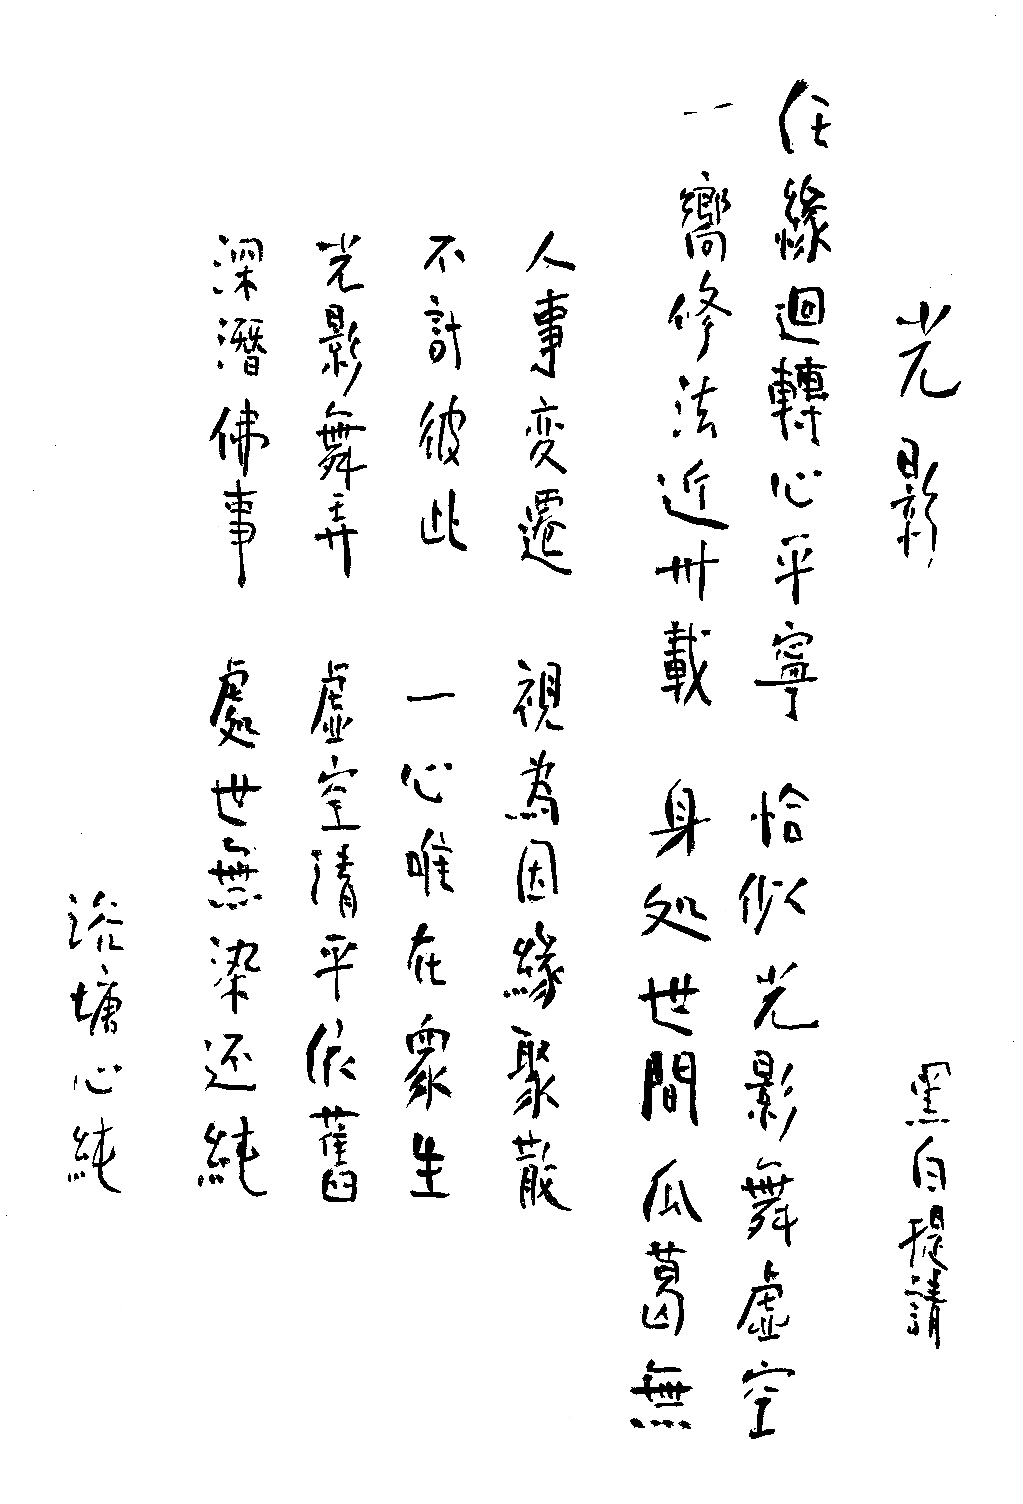 光影
黑白提請
任緣迴轉心平寧 恰似光影舞虛空
一嚮修法近卅載 身处世間瓜葛無
人事变遷 視為因緣聚散
不計彼此 一心唯在眾生
光影舞弄 虛空清平依舊
深潛佛事 處世無染还純
浴塘心純